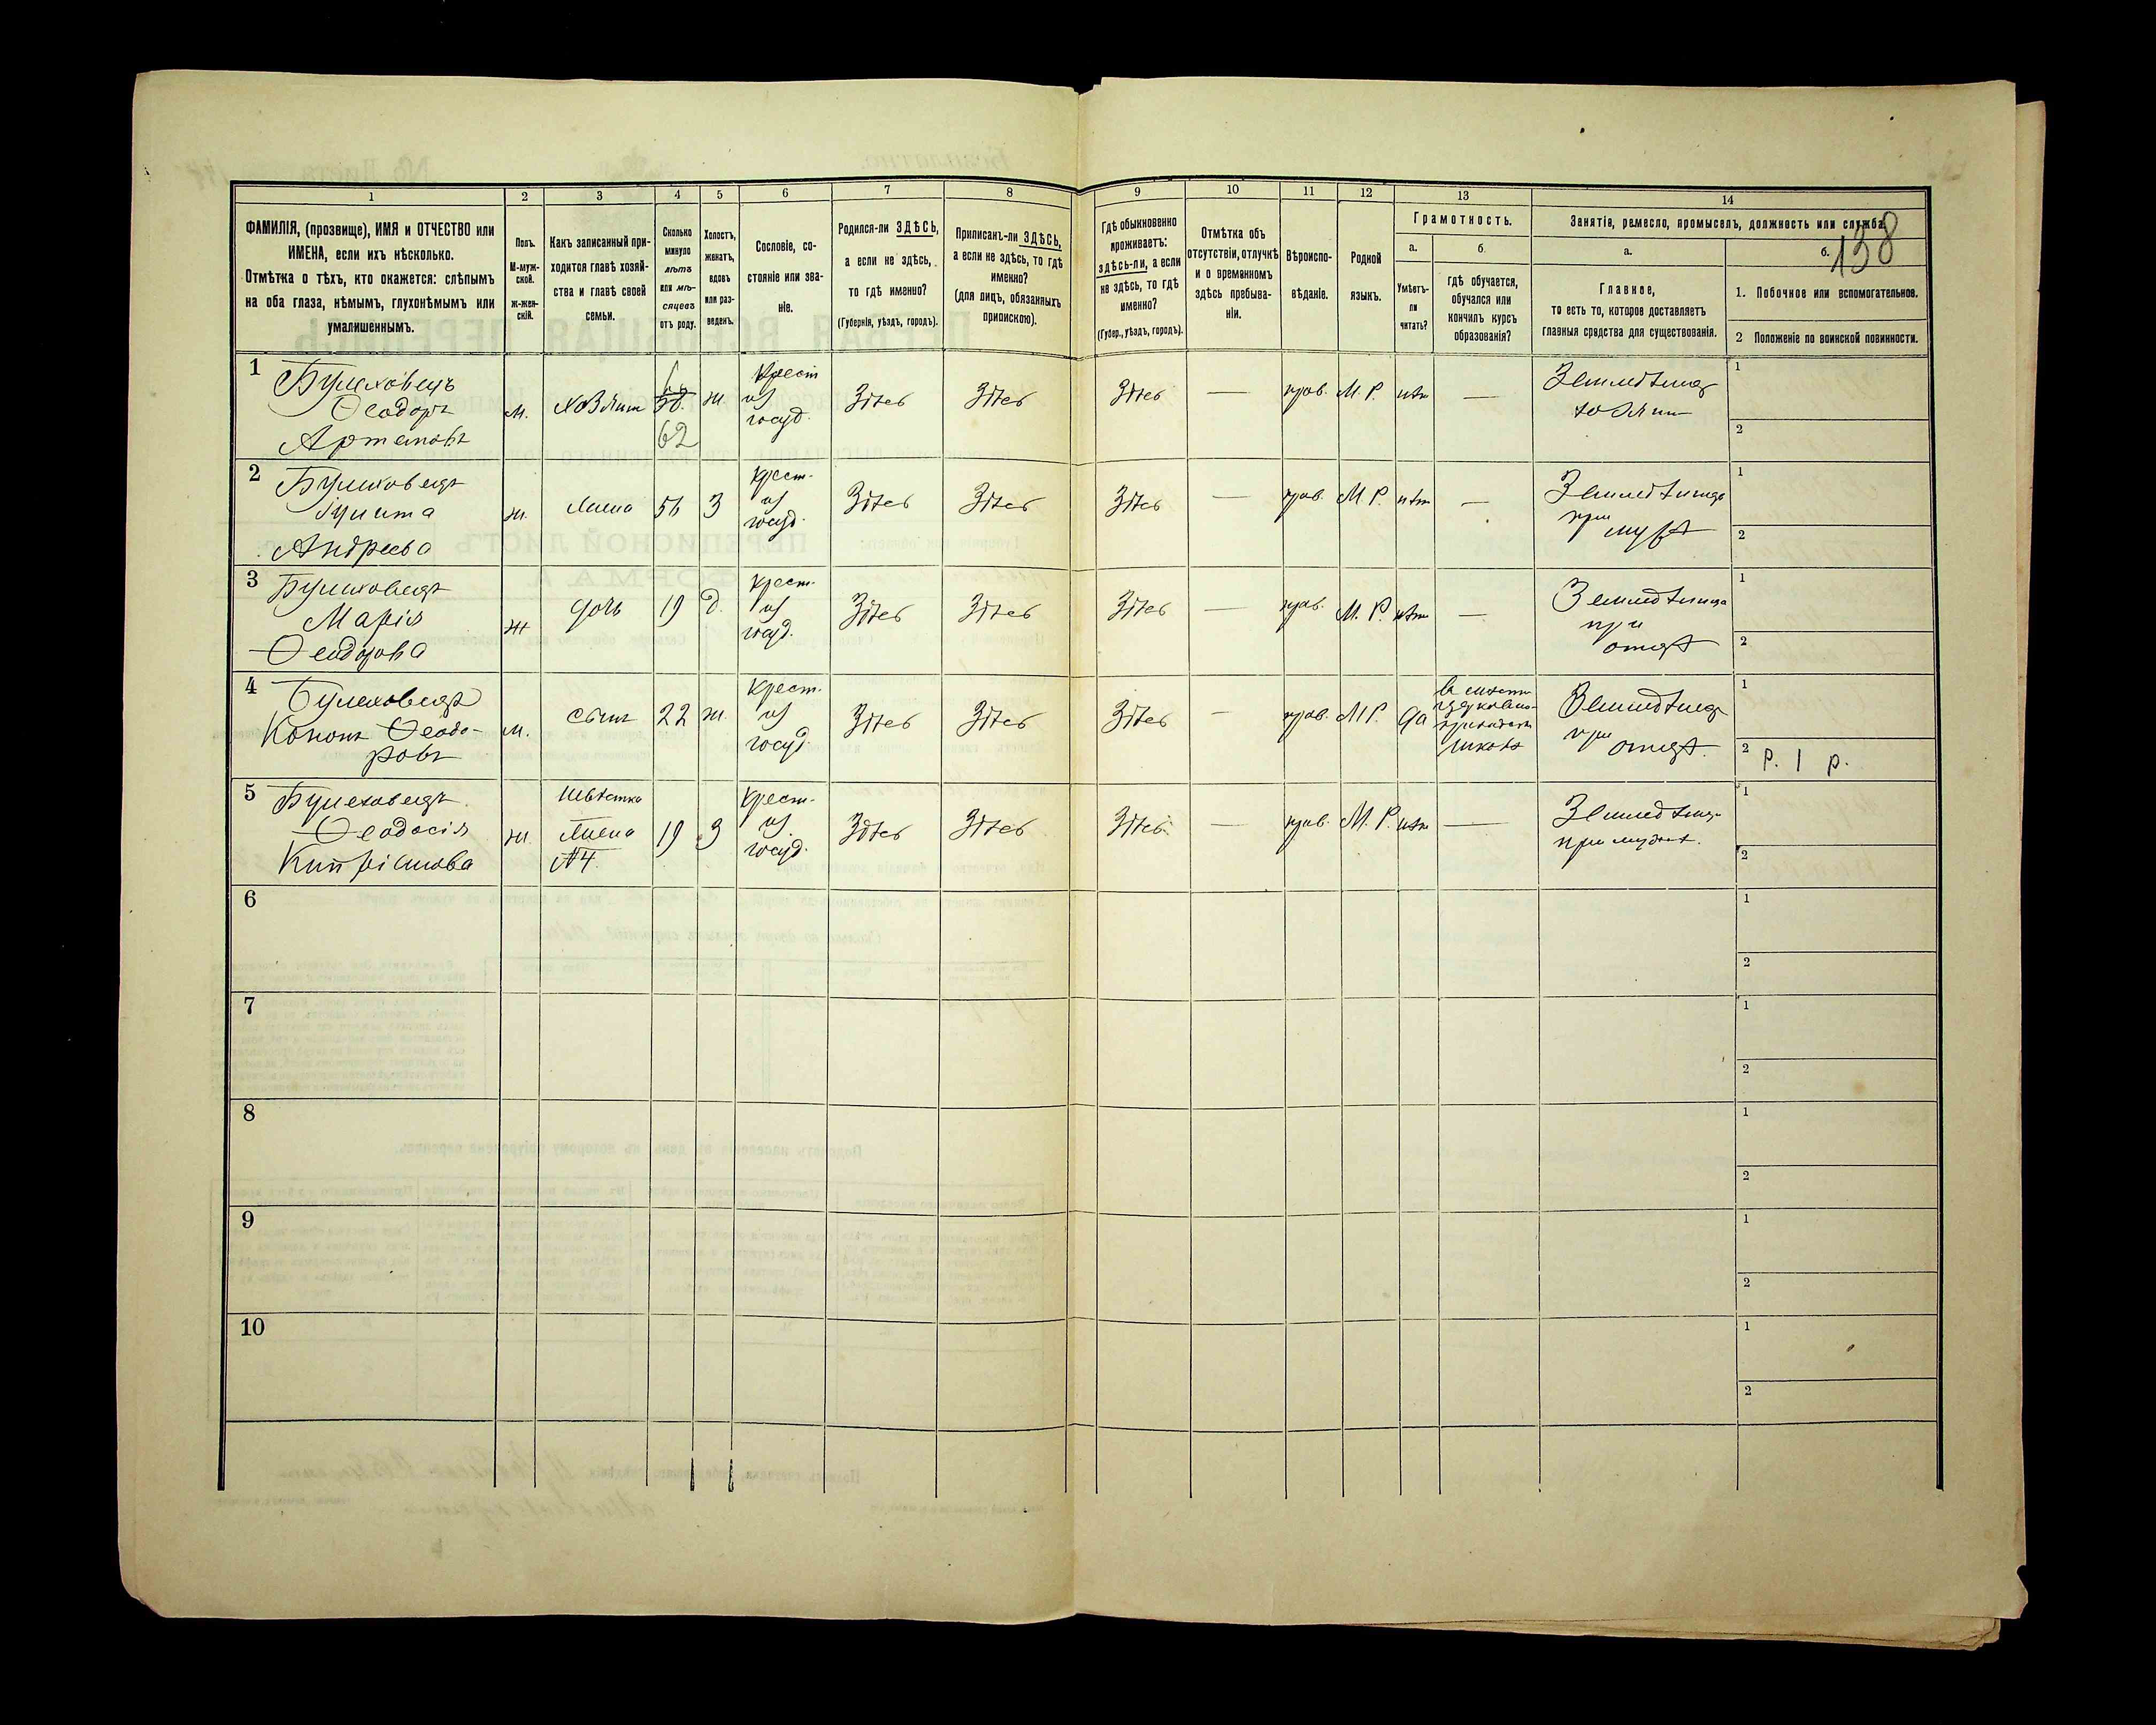 1 2 3 4 5 6 7 8 9 10 11 12 13 14
ФАМИЛІЯ, (прозвище), ИМЯ и ОТЧЕСТВО или
ИМЕНА, если ихъ нѣсколько.
Отмѣтка о тѣхъ, кто окажется: слѣпымъ
на оба глаза, нѣмымъ, глухонѣмымъ или
умалишеннымъ.
Полъ.
М-муж-
ской.
ж-жен-
скій.
Какъ записанный при-
ходится главѣ хозяй-
ства и главѣ своей
семьи.
Сколько
минуло
лѣтъ
или мѣ-
сяцевъ
отъ роду.
Холостъ,
женатъ,
вдовъ
или раз-
веденъ.
Сословіе, со-
стояніе или зва-
ніе.
Родился-ли ЗДѢСЬ,
а если не здѣсь,
то гдѣ именно?
(Губернія, уѣздъ, городъ).
Приписанъ-ли ЗДѢСЬ,
а если не здѣсь, то гдѣ
именно?
(для лицъ, обязанныхъ
припискою).
Гдѣ обыкновенно
проживаетъ:
здѣсь-ли, а если
не здѣсь, то гдѣ
именно?
(Губер., уѣздъ, городъ).
Отмѣтка объ
отсутствіи, отлучкѣ
и о временномъ
здѣсь пребыва-
ніи.
Вѣроиспо-
вѣданіе.
Родной
языкъ.
Грамотность.
а.
Умѣетъ-
ли
читать?
б.
гдѣ обучается,
обучался или
кончилъ курсъ
образованія?
Занятія, ремесло, промыселъ, должность или служба.
138
а.
Главное,
то есть то, которое доставляетъ
главныя средства для существованія.
б.
1. Побочное или вспомогательное.
2 Положеніе по воинской повинности.
1
Ѳеодоръ
Артемовъ
м.
хозяинъ
62
ж
Крест
из
госуд.
Здѣсь
Здѣсь
Здѣсь
—
прав.
М. Р.
нѣт
—
Земледѣлец
хозяин
1
2
2
Андреева
ж.
Жена
56
З
крест.
из
госуд.
Здѣсь
Здѣсь
Здѣсь
—
прав.
М. Р.
нѣт
—
при мужѣ
1
2
3
Марія
Ѳеодорова
ж
дочь
19
д.
крест.
из
госуд.
Здѣсь
Здѣсь
Здѣсь
—
прав.
М. Р.
нѣт
—
при
отцѣ
1
2
4
Кононъ Ѳеодо-
ровъ
м.
сынъ
22
ж.
крест.
из
госуд.
Здѣсь
Здѣсь
Здѣсь
—
прав.
М Р.
да
Земледѣлец
при отцѣ.
1
2 Р. 1 р.
5
Ѳеодосія
Кипріянова
ж.
Невѣстка
Жена
№4.
19
З
крест.
из
госуд.
Здѣсь
Здѣсь
Здѣсь
—
прав.
М. Р.
нѣт
—
при мужѣ.
1
2
6
1
2
7
1
2
8
1
2
9
1
2
10
1
2